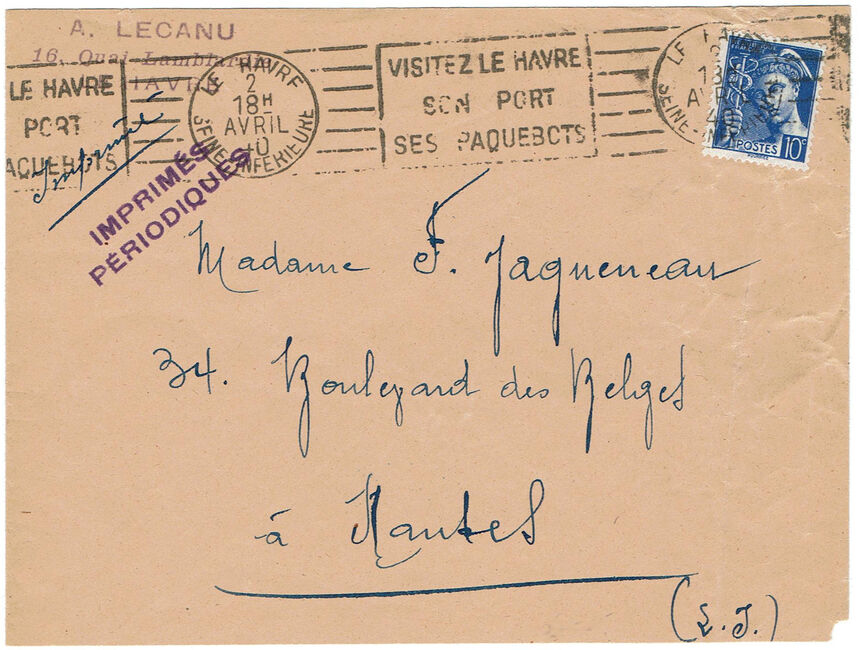 A. LECANU
16, Quai Lamblardie
HAVRE
LE HAVRE
PORT
PAQUEBOTS
LE HAVRE
2
18H
AVRIL
40
SEINE INFERIEURE
VISITEZ LE HAVRE
SON PORT
SES PAQUEBOTS
LE HAVRE
18H
AVRIL
40
SEINE-INFRE
POSTES 10c
Imprimé
IMPRIMÉS
PÉRIODIQUES
Madame F. Jaqueneau
34. Boulevard des Belges
à Nantes
(L. I.)